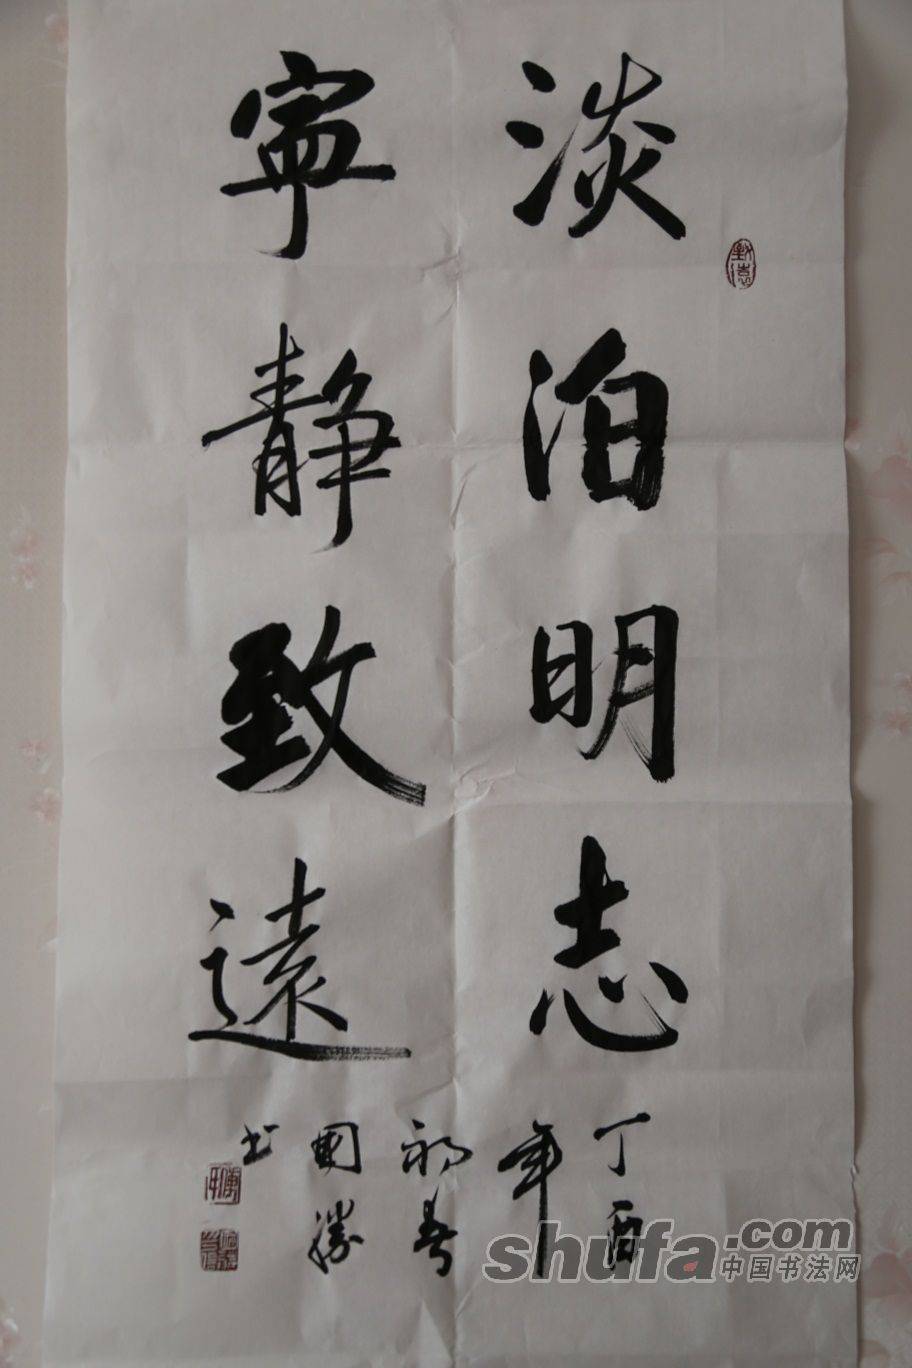 淡泊明志
寧静致遠
丁酉
年
初春
國勝
书
致遠
shufa.com
中国书法网